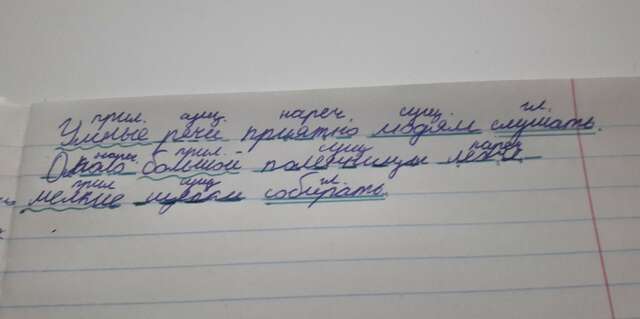 прил. сущ. нареч. сущ. гл.
Умные речи приятно людям слушать.
нареч. прил. сущ. нареч
Около большой поленницы легче
прил сущ гл.
мелкие щепки собирать.